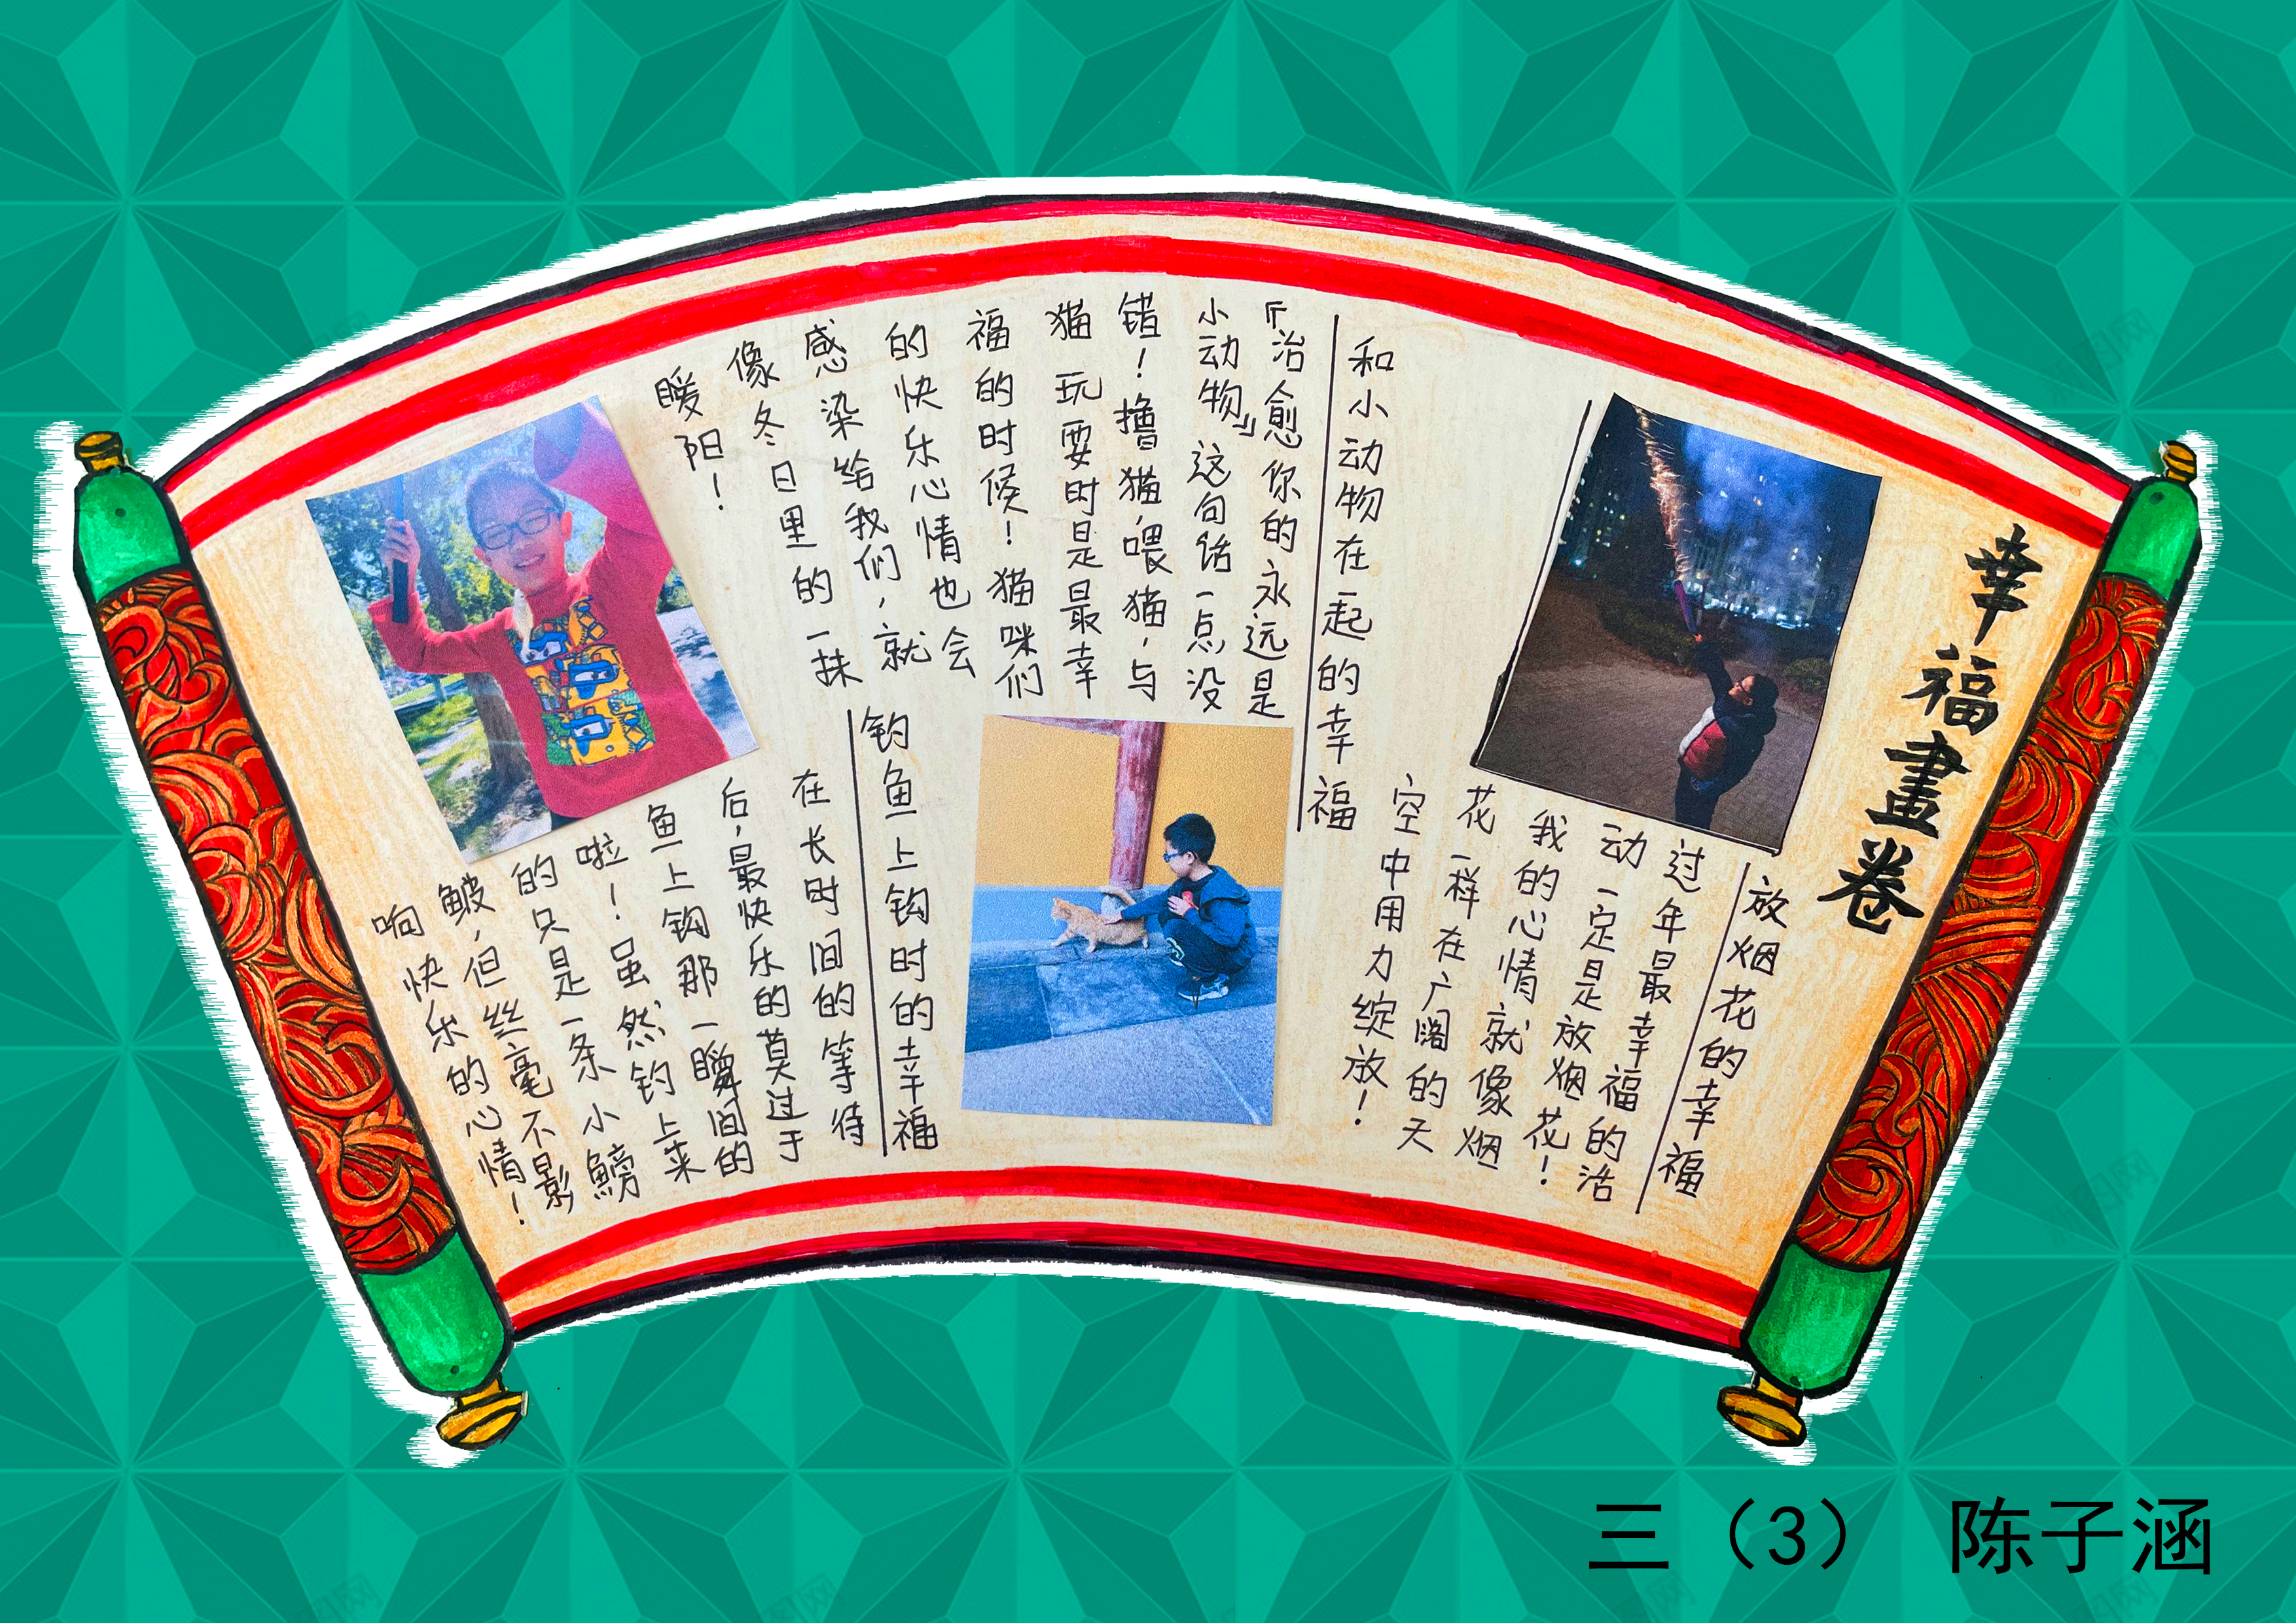 幸福畫卷
放烟花的幸福
过年最幸福的活
动一定是放烟花！
我的心情就像烟
花一样在广阔的天
空中用力绽放！
和小动物在一起的幸福
『治愈你的永远是
小动物』这句话一点没
错！撸猫，喂猫，与
猫玩耍时是最幸
福的时候！猫咪们
的快乐心情也会
感染给我们，就
像冬日里的一抹
暖阳！
钓鱼上钩时的幸福
在长时间的等待
后，最快乐的莫过于
鱼上钩那一瞬间的
啦！虽然钓上来
的只是一条小鳑
鲏，但丝毫不影
响快乐的心情！
三（3） 陈子涵